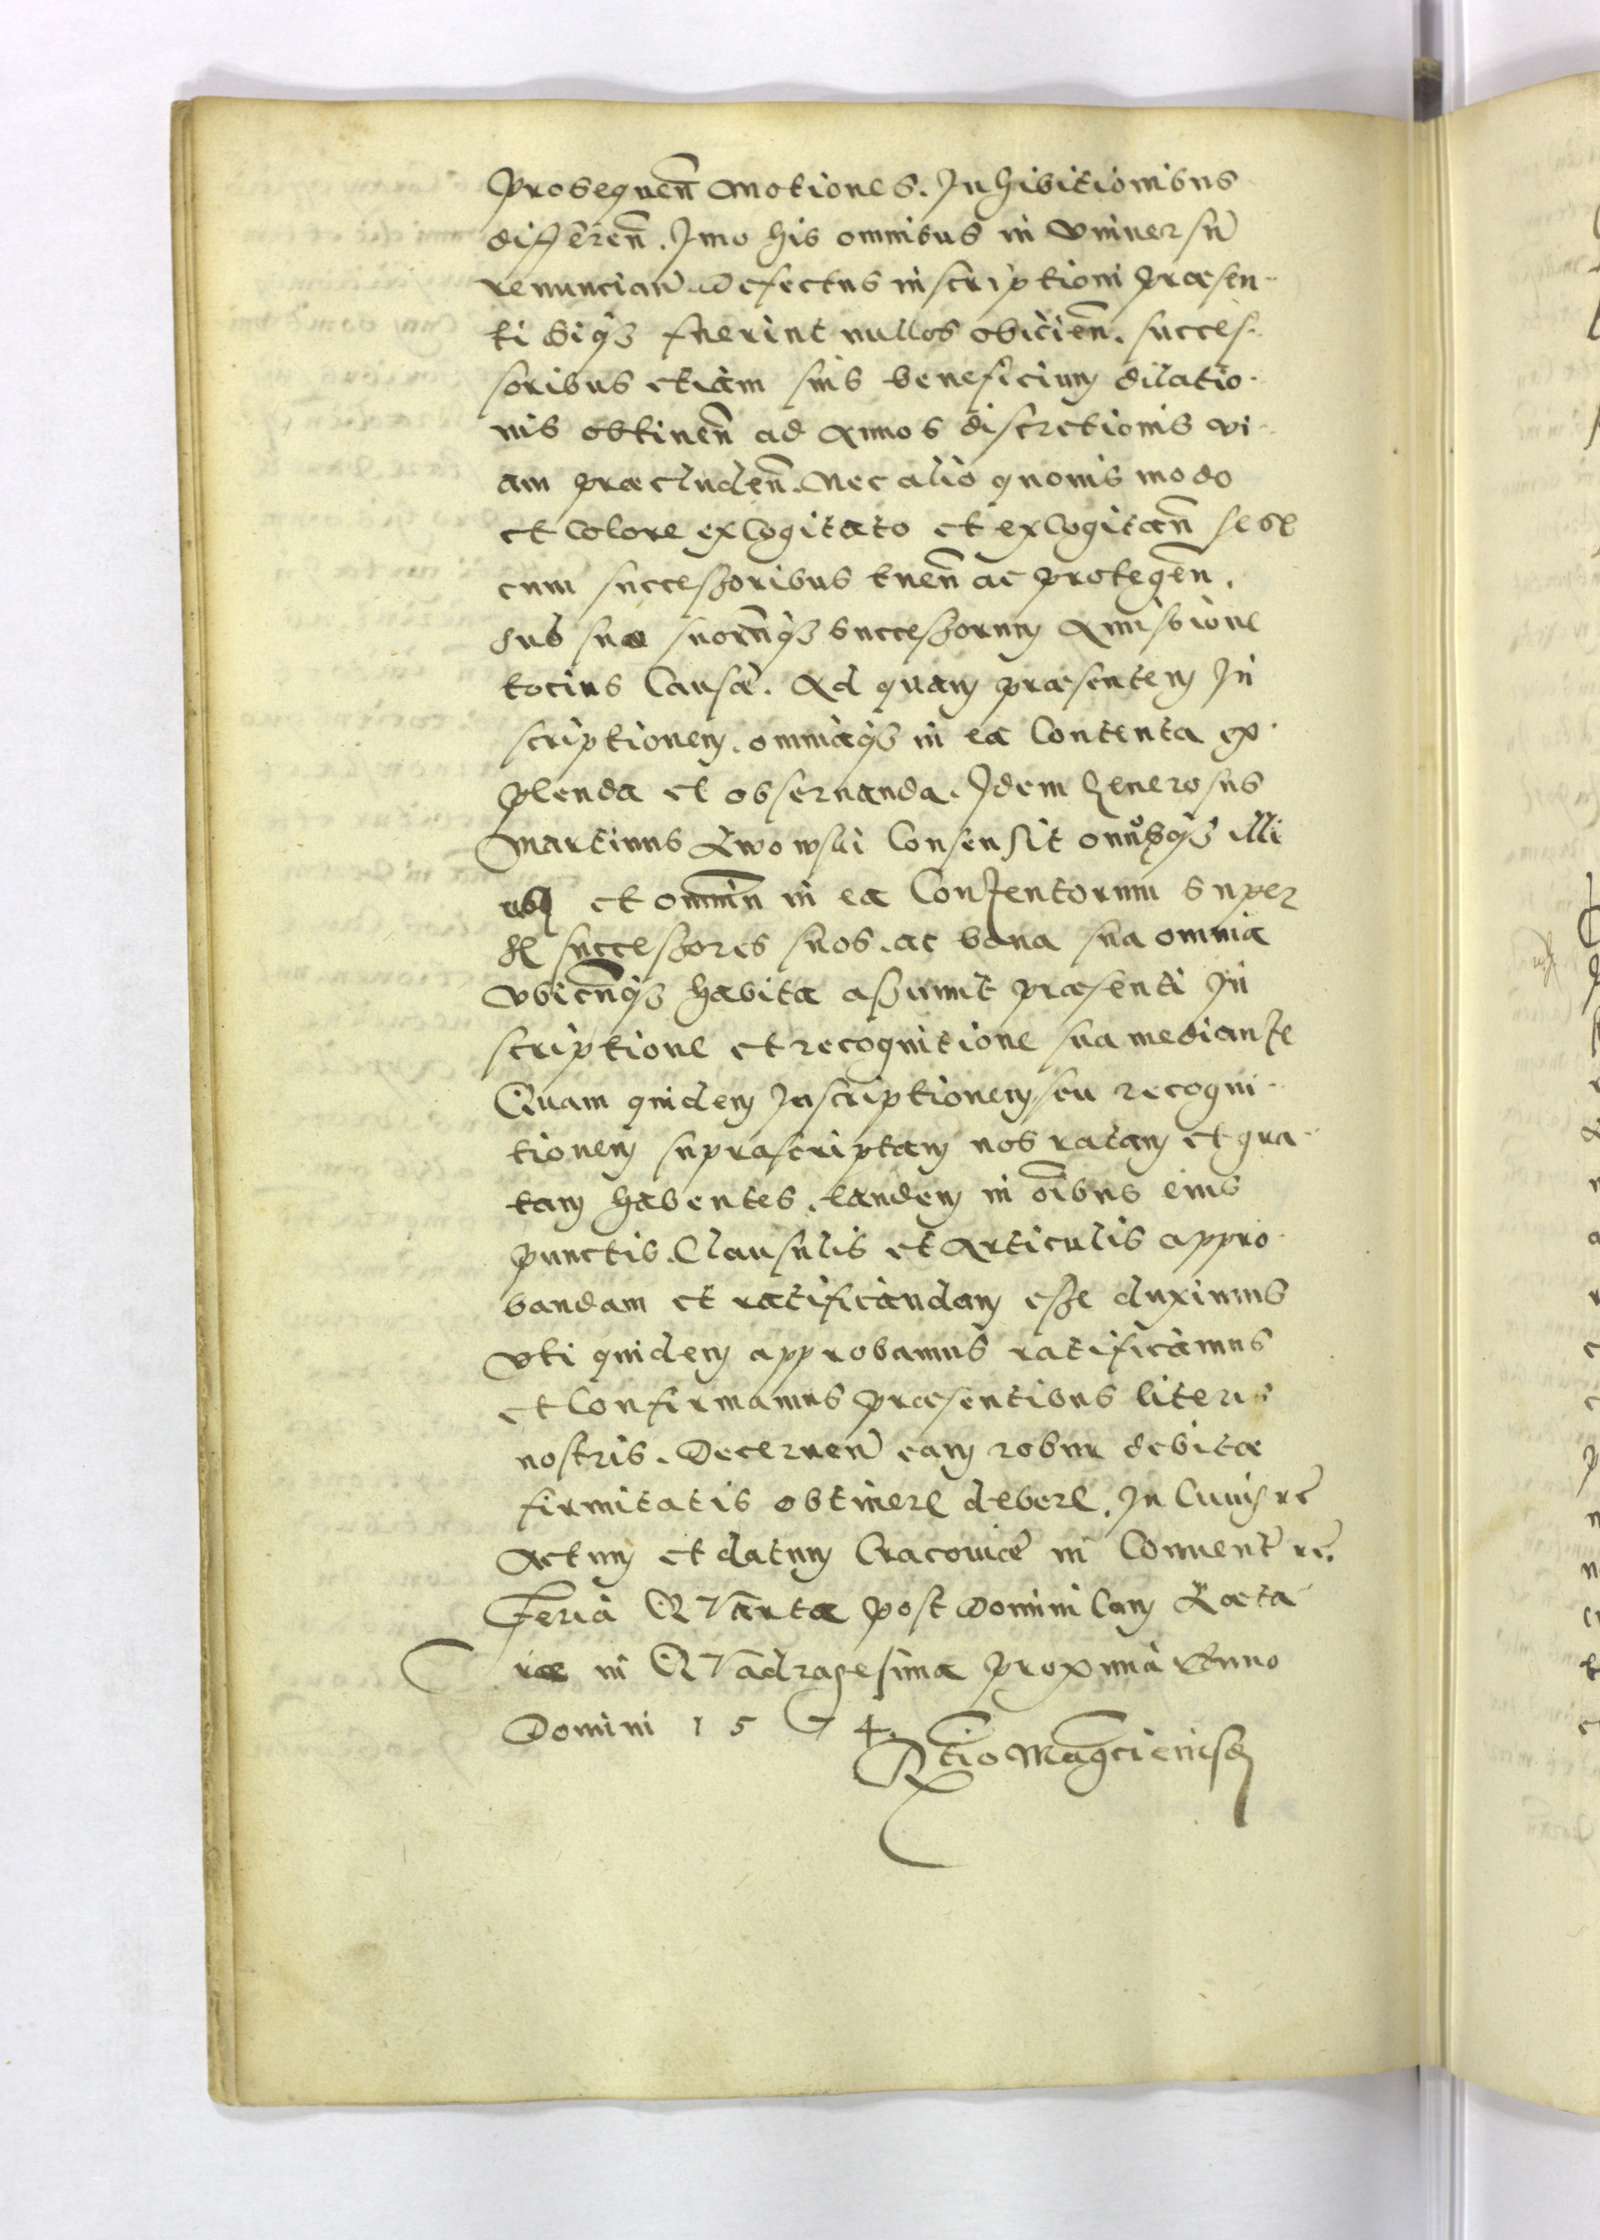 prosequen̄ motiones. Inhibitionibus
differen̄. Imo his omnibus in vniuersū
renuncian̄. Defectus inscriptioni præsen-
ti siq3 fuerint nullos obicien̄. succes-
soribus etiam suis beneficium dilatio-
nis obtinen̄ ad annos discretionis vi-
am præcluden̄. Nec alio quouis modo
et colore excogitato et excogitan̄ sese
cum successoribus tuen̄ ac protegen̄.
sub sua suorūq3 successorum amissione
tocius causæ. Ad quam præsentem In
scriptionem. omniaq3 in ea contenta ex-
plenda et obseruanda. Idem Generosus
Martinus Lwowski consensit onusq3 illi
et omniū in ea contentorum super
se successores suos. ac bona sua omnia
vbicūq3 habita assumit præsenti In
scriptione et recognitione sua mediante
Quam quidem Inscriptionem seu recogni-
tionem suprascriptam nos ratam et gra-
tam habentes. eandem in oībus eius
punctis. Clausulis et Articulis appro-
bandam et ratificandam esse duximus
vti quidem approbamus ratificamus
et confirmamus præsentibus literis
nostris. Decernen̄ eam robur debitæ
firmitatis obtinere debere. In cuius rē
Actum et datum Cracouiæ in Conuent rē.
Feria QVarta post Dominicam Læta
re in QVadragesima proxima Anno
Domini 1574.